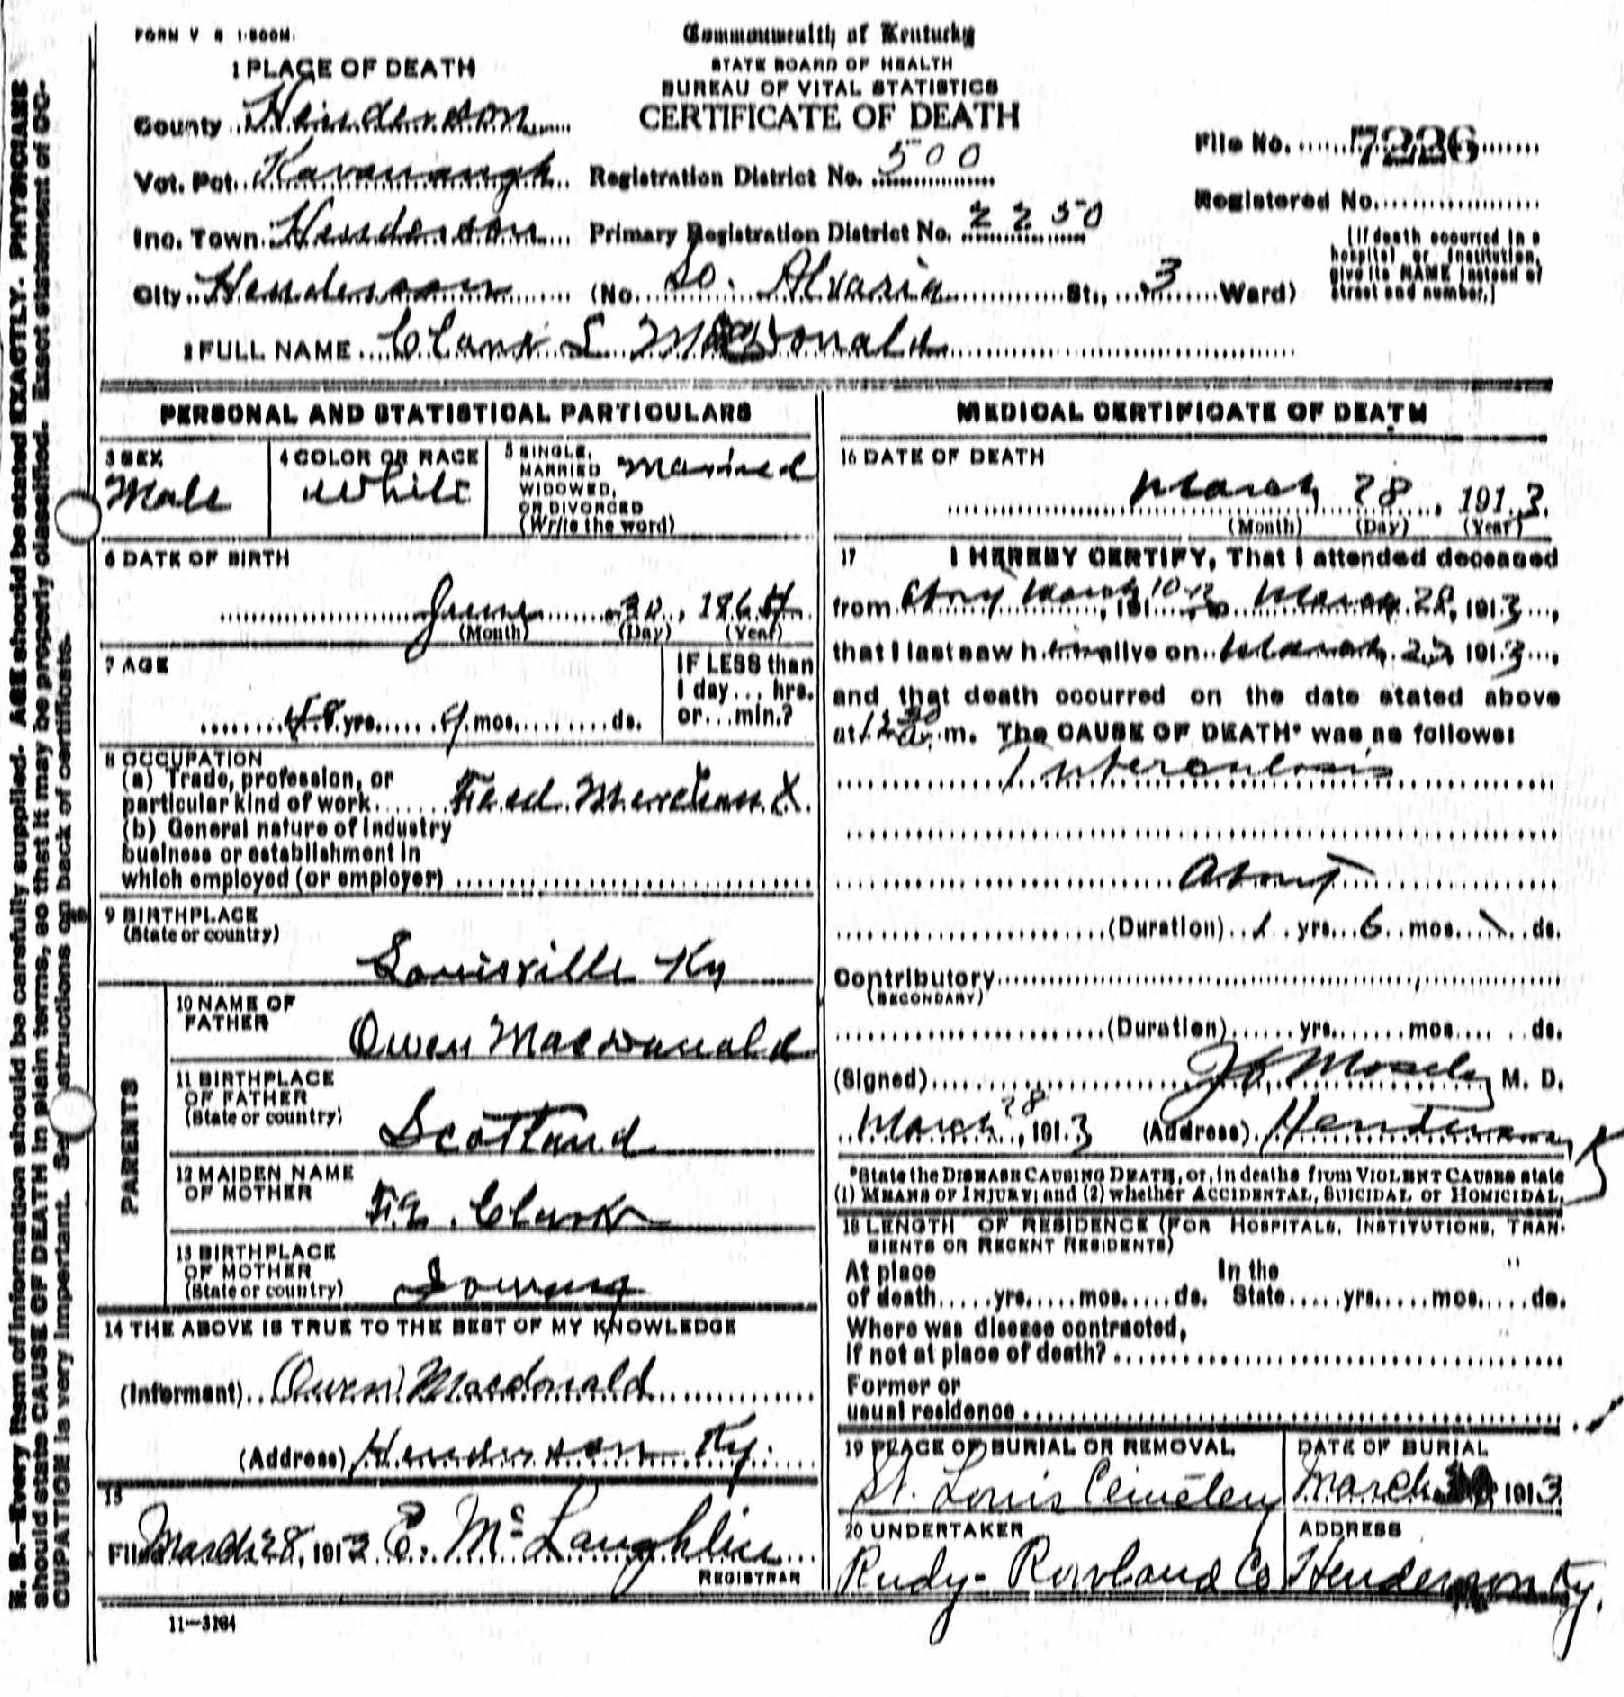 FORM V S 1-500M.
Commonwealth of Kentucky
STATE BOARD OF HEALTH
BUREAU OF VITAL STATISTICS
CERTIFICATE OF DEATH
1 PLACE OF DEATH
County Henderson
Vot. Pct. Kavanaugh Registration District No. 500
File No. 7226
Inc. Town Henderson Primary Registration District No. 2250
Registered No.
City Henderson (No. So. Alvasia St., 3 Ward)
(If death occurred in a
hospital or institution,
give its NAME instead of
street and number.)
2 FULL NAME Clark L MacDonald
PERSONAL AND STATISTICAL PARTICULARS
3 SEX
Male
4 COLOR OR RACE
White
5 SINGLE,
MARRIED
WIDOWED,
OR DIVORCED
(Write the word)
Married
6 DATE OF BIRTH
June 30, 1864
(Month) (Day) (Year)
7 AGE
48 yrs. 9 mos. ds.
IF LESS than
1 day... hrs.
or...min.?
8 OCCUPATION
(a) Trade, profession, or
particular kind of work Feed Merchant
(b) General nature of industry
business or establishment in
which employed (or employer)
9 BIRTHPLACE
(State or country)
Louisville Ky
PARENTS
10 NAME OF
FATHER
Owen Macdonald
11 BIRTHPLACE
OF FATHER
(State or country)
Scotland
12 MAIDEN NAME
OF MOTHER
F.E. Clark
13 BIRTHPLACE
OF MOTHER
(State or country)
14 THE ABOVE IS TRUE TO THE BEST OF MY KNOWLEDGE
(Informant) Owen Macdonald
(Address) Henderson Ky.
15
Filed March 28, 1913 E. McLaughlin
REGISTRAR
11—3184
MEDICAL CERTIFICATE OF DEATH
16 DATE OF DEATH
March 28, 1913.
(Month) (Day) (Year)
17 I HEREBY CERTIFY, That I attended deceased
from March 1912 to March 28, 1913,
that I last saw him alive on March 1913,
and that death occurred on the date stated above
at 12 30 a. m. The CAUSE OF DEATH* was as follows:
Tuberculosis
About
(Duration) 1 yrs. 6 mos. ds.
Contributory
(SECONDARY)
(Duration) yrs. mos. ds.
(Signed) Mosely M. D.
March 28, 1913 (Address) Henderson Ky
*State the DISEASE CAUSING DEATH, or, in deaths from VIOLENT CAUSES state
(1) MEANS OF INJURY; and (2) whether ACCIDENTAL, SUICIDAL or HOMICIDAL.
18 LENGTH OF RESIDENCE (FOR HOSPITALS, INSTITUTIONS, TRAN-
SIENTS OR RECENT RESIDENTS)
At place In the
of death yrs. mos. ds. State yrs. mos. ds.
Where was disease contracted,
if not at place of death?
Former or
usual residence
19 PLACE OF BURIAL OR REMOVAL
St. Louis Cemetery
DATE OF BURIAL
March 1913
20 UNDERTAKER
Rudy-Rowland Co
ADDRESS
Henderson Ky.
N. B.—Every item of information should be carefully supplied. AGE should be stated EXACTLY. PHYSICIANS
should state CAUSE OF DEATH in plain terms, so that it may be properly classified. Exact statement of OC-
CUPATION is very important. See instructions on back of certificate.